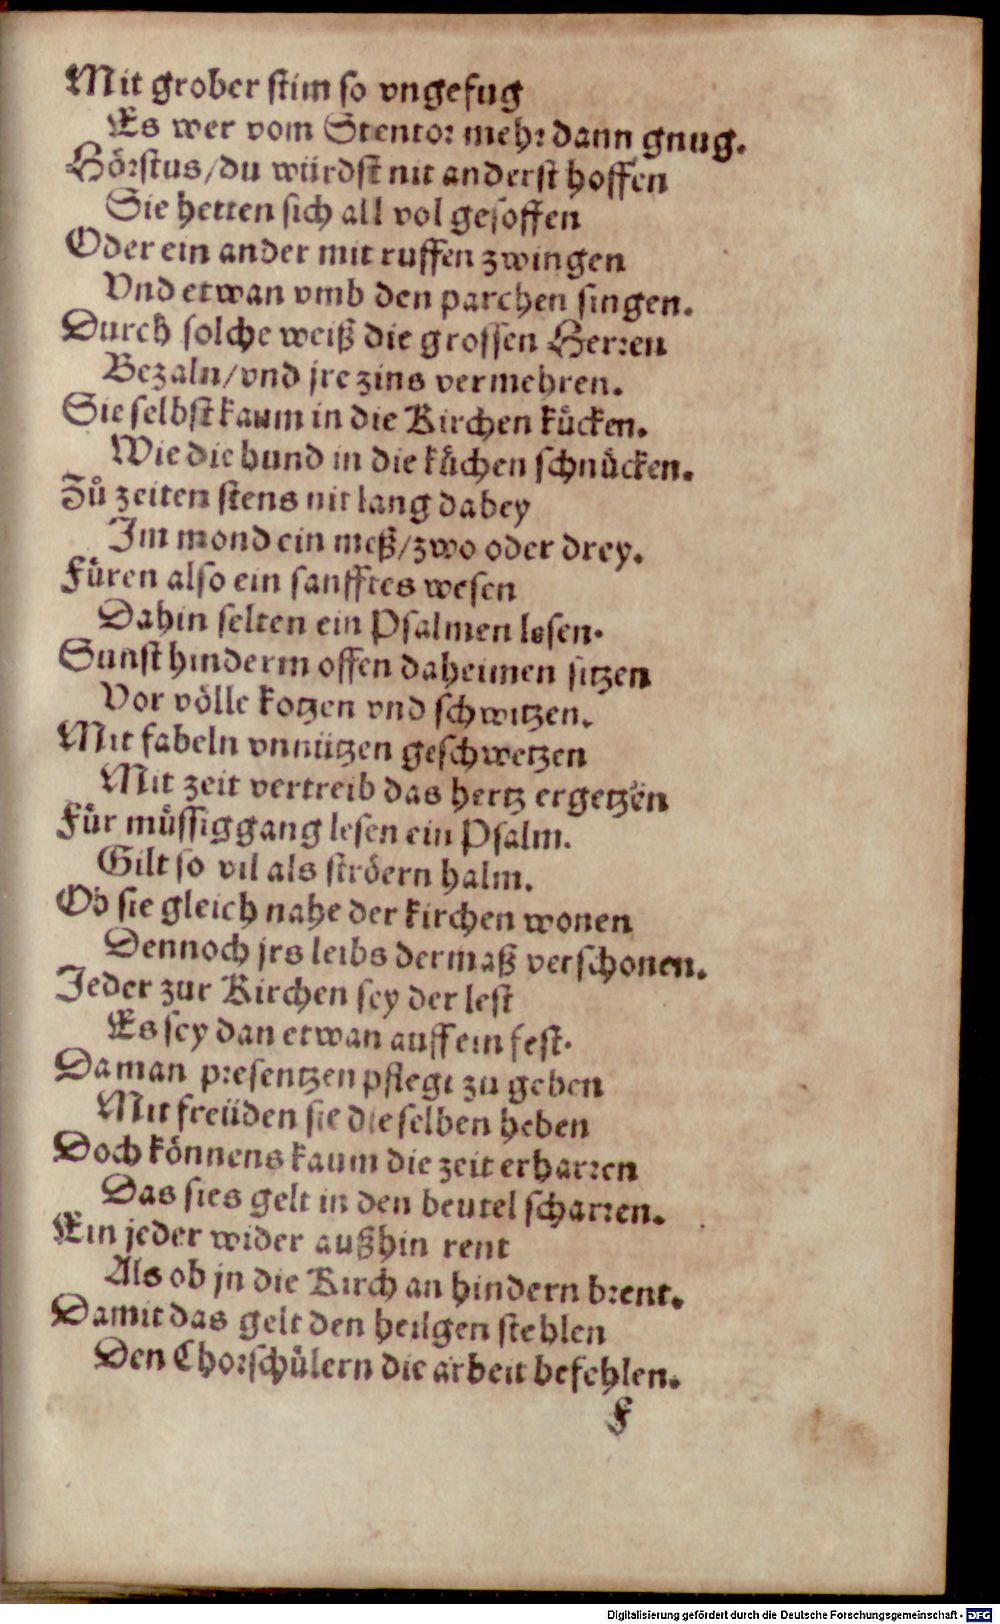 Mit grober stim so vngefug
Es wer vom Stentor mehr dann gnug.
Hörstus/du würdst nit anderst hoffen
Sie hetten sich all vol gesoffen
Oder ein ander mit ruffen zwingen
Vnd etwan vmb den parchen singen.
Durch solche weiß die grossen Herren
Bezaln/vnd jre zins vermehren.
Sie selbst kaum in die Kirchen kücken.
Wie die hund in die küchen schnücken.
Zů zeiten stens nit lang dabey
Im mond ein meß/zwo oder drey.
Füren also ein sanfftes wesen
Dahin selten ein Psalmen lesen.
Sunst hinderm offen daheimen sitzen
Vor völle kotzen vnd schwitzen.
Mit fabeln vnnützen geschwetzen
Mit zeit vertreib das hertz ergetzen
Für müssiggang lesen ein Psalm.
Gilt so vil als ströern halm.
Ob sie gleich nahe der kirchen wonen
Dennoch jrs leibs dermaß verschonen.
Jeder zur Kirchen sey der lest
Es sey dan etwan auff ein fest.
Da man presentzen pflegt zu geben
Mit freüden sie dieselben heben
Doch können s kaum die zeit erharren
Das sies gelt in den beutel scharren.
Ein jeder wider außhin rent
Als ob jn die Kirch an hindern brent.
Damit das gelt den heilgen stehlen
Den Chorschülern die arbeit befehlen.
F
Digitalisierung gefördert durch die Deutsche Forschungsgemeinschaft - DFG